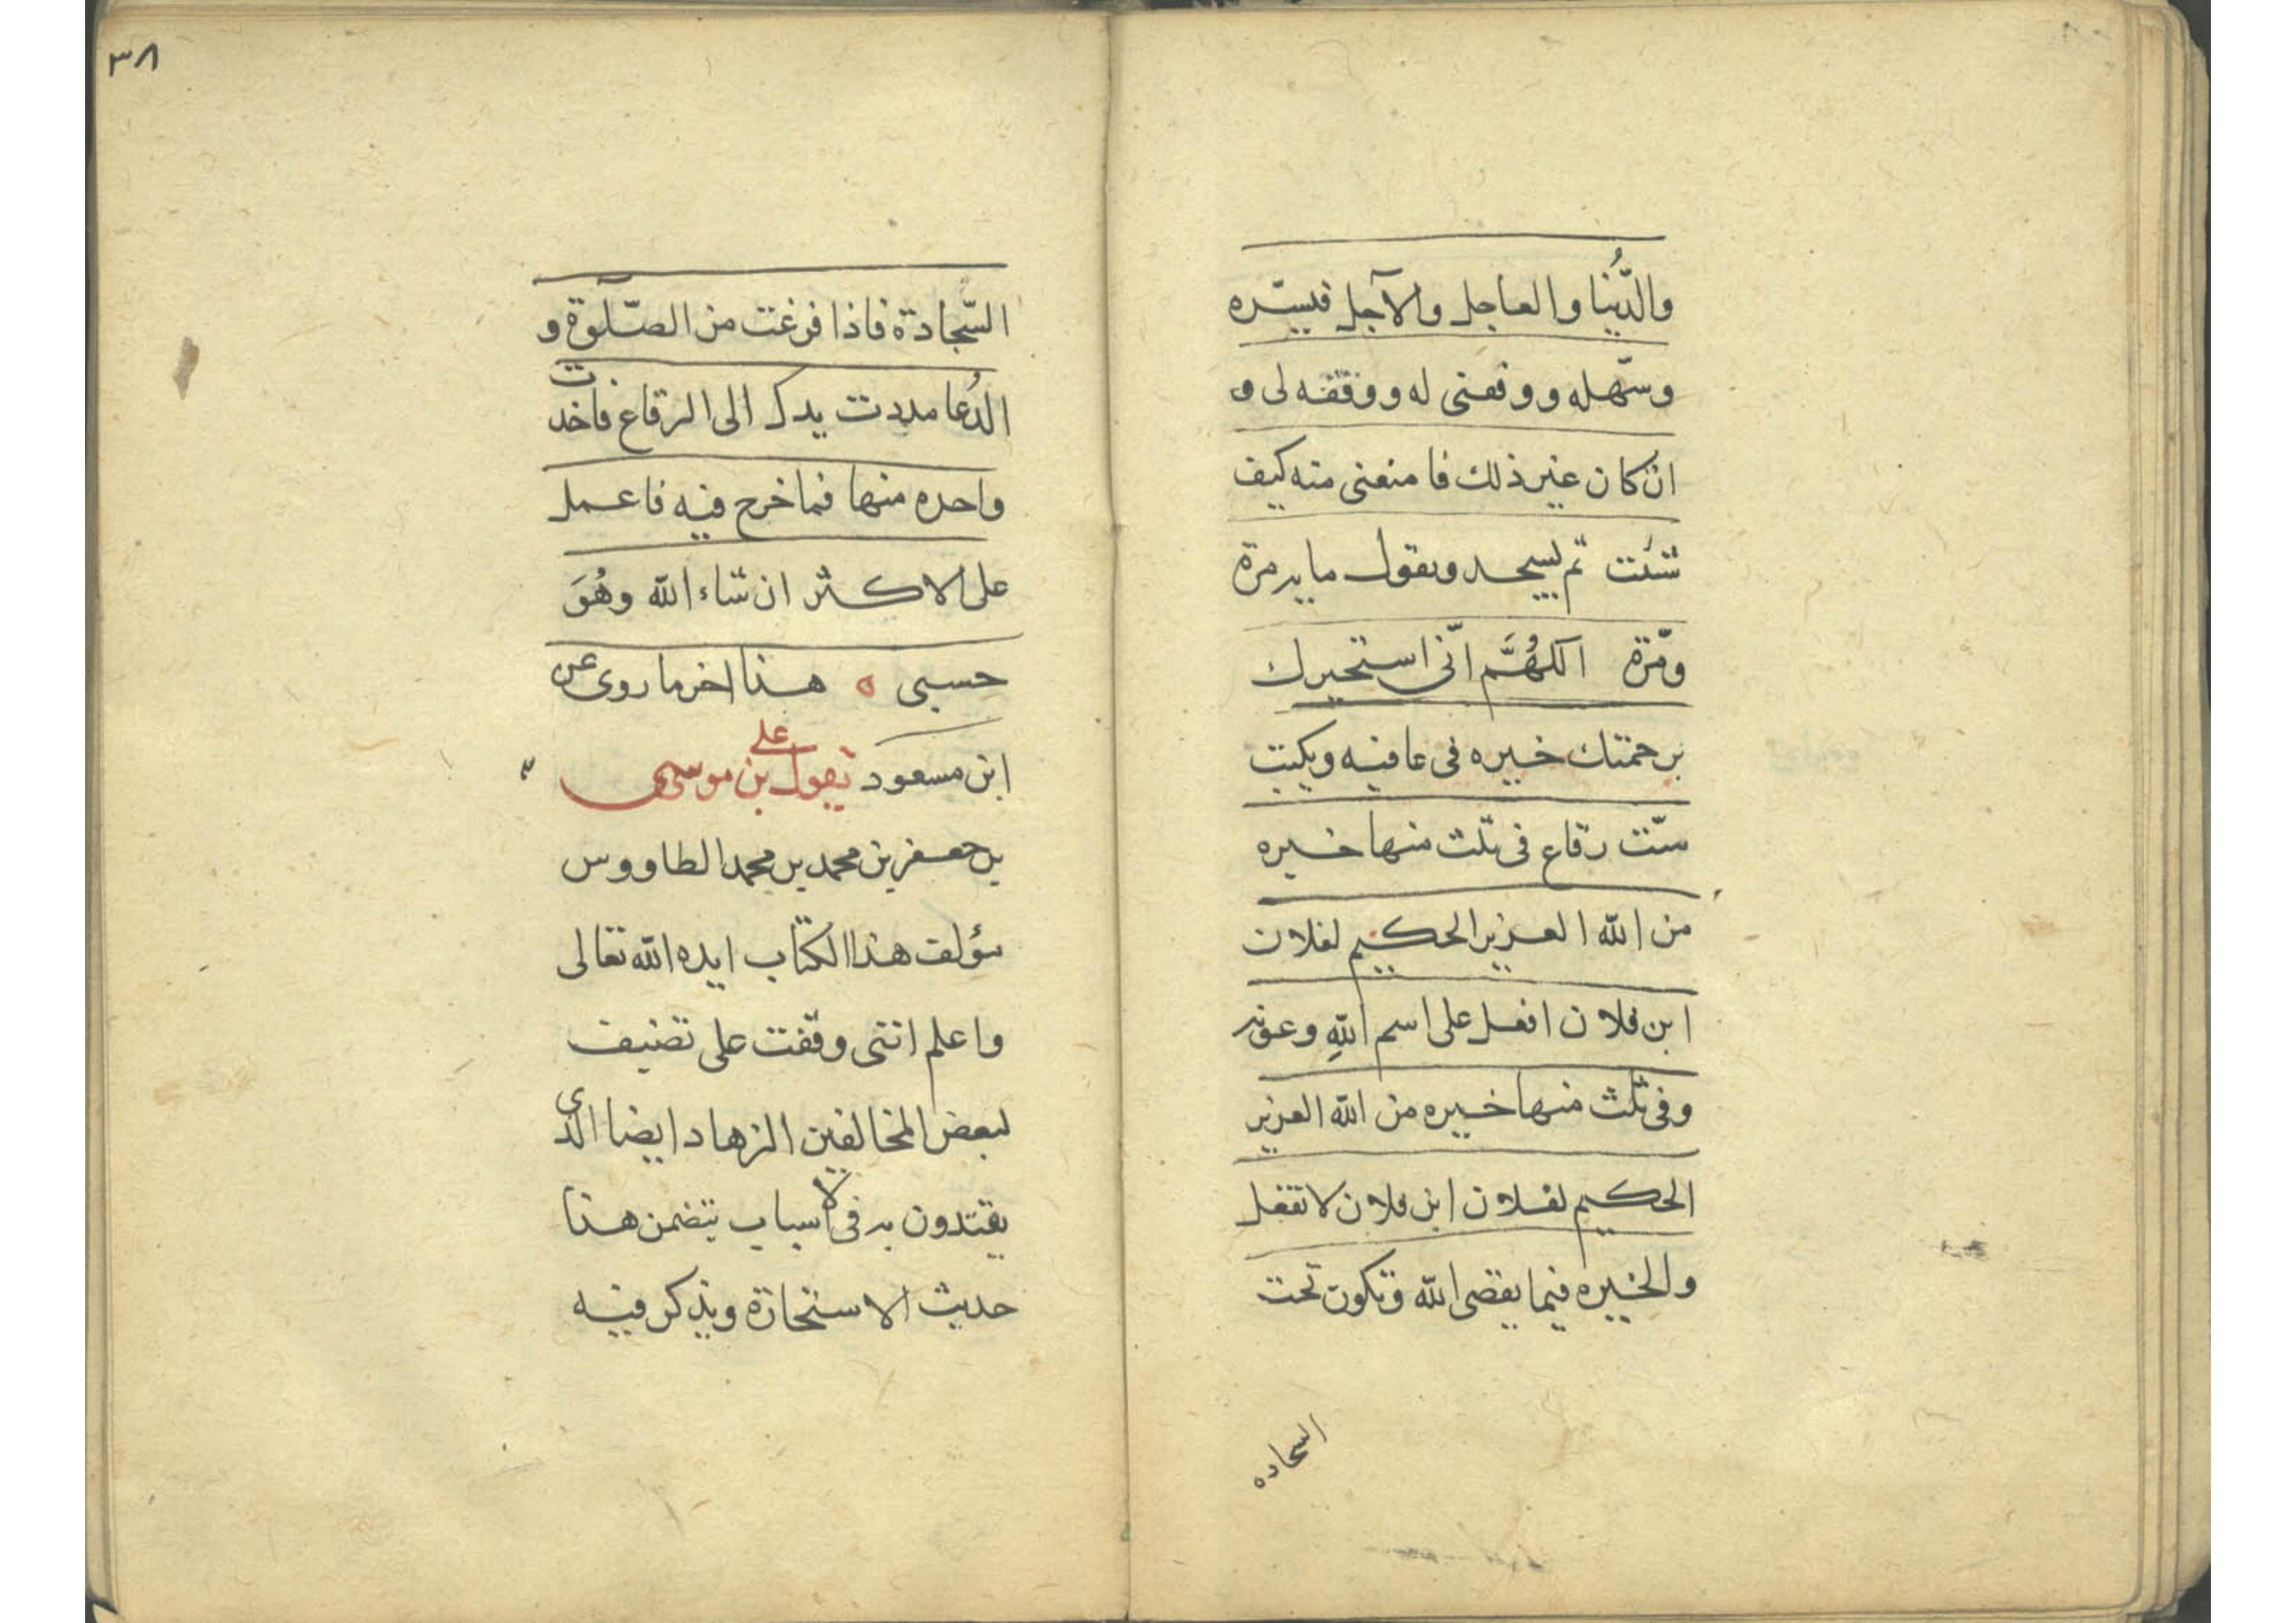 والدُّنيا والعاجل والآجل فيسّره
وسّهله ووفقنى له ووفقه لى و
ان كان غير ذلك فامنعنى منه كيف
شئت ثم يسجد ويقول مايه مرة
ومّرة اللهُمَّ انّى استخيرك
برحمتك خيره فى عافيه ويكتب
ستّ رقاع فى ثلث منها خيره
من الله العزيز الحكيم لفلان
ابن فلان افعل على اسم اللهِ وعونه
وفى ثلث منها خيره من الله العزيز
الحكيم لفلان ابن فلان لا تفعل
والخيره فيما يقضى الله وتكون تحت
السجاده
٣٨
السّجادة فاذا فرغت من الصّلوة و
الدُعا مددت يدك الى الرقاع فاخذت
واحده منها فما خرج فيه فاعمل
على الاكثر ان شاء الله وهُوَ
حسبى ه هذا اخر ما روى عن
ابن مسعود يقول على بن موسى
بن جعفر بن محمد بن محمد الطاووس
مؤلف هذا الكتاب ايده الله تعالى
واعلم اننى وقفت على تصنيف
لبعض المخالفين الزهاد ايضا الذى
يقتدون به فى الاسباب يتضمن هذا
حديث الاستخارة ويذكر فيه